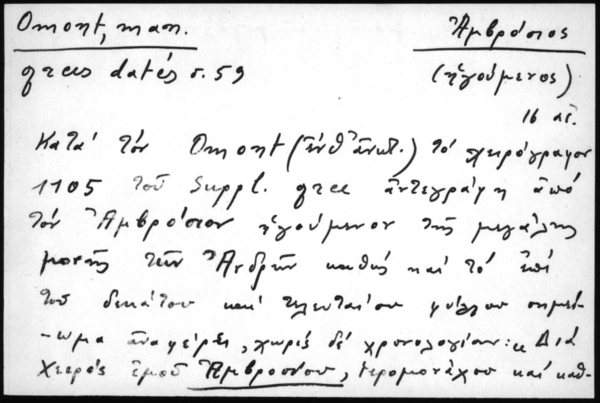 Omont, man. Ἀμβρόσιος
grecs datés σ. 59 (ἡγούμενος)
16 αἰ.
Κατά τόν Omont (ἔνθ' ἀνωτ.) τό χειρόγραφον
1105 τοῦ Suppl. grec ἀντεγράφη ἀπό
τόν Ἀμβρόσιον ἡγούμενον τῆς μεγάλης
μονῆς τῶν Ἀνδρῶν καθώς καί τό ἐπί
τοῦ δεκάτου καί τελευταίου φύλλου σημεί-
-ωμα ἀναφέρει, χωρίς δέ χρονολογίαν: « Διά
Χειρός ἐμοῦ Ἀμβροσίου, ἱερομονάχου καί καθ-